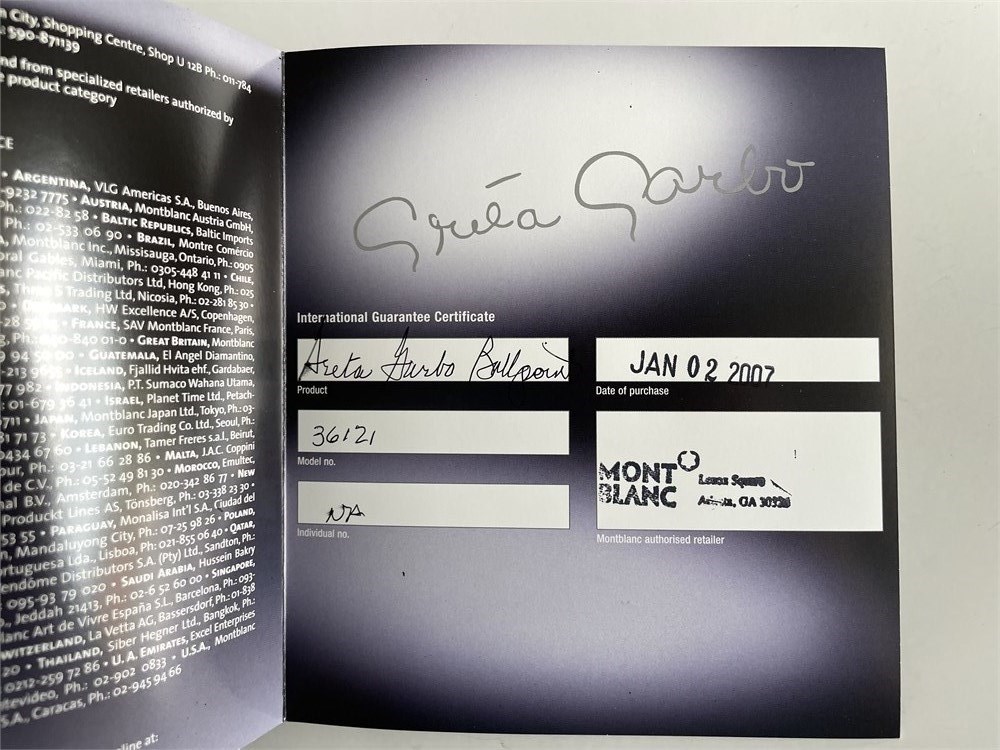 City, Shopping Centre, Shop U 12B Ph.: 011-784
590-871139
from specialized retailers authorized by
product category
• ARGENTINA, VLG Americas S.A., Buenos Aires,
-9232 7775 • AUSTRIA, Montblanc Austria GmbH,
Ph.: 022-82 58 • BALTIC REPUBLICS, Baltic Imports
Ph.: 02-533 06 90 • BRAZIL, Montre Comércio
Montblanc Inc., Mississauga, Ontario, Ph.: 0905
Gables, Miami, Ph.: 0305-448 41 11 • CHILE,
Pacific Distributors Ltd, Hong Kong, Ph.: 025
Trading Ltd, Nicosia, Ph.: 02-281 85 30 •
HW Excellence A/S, Copenhagen,
• FRANCE, SAV Montblanc France, Paris,
840 01-0 • GREAT BRITAIN, Montblanc
• GUATEMALA, El Angel Diamantino,
• ICELAND, Fjallid Hvita ehf., Gardabaer,
77 982 • INDONESIA, P.T. Sumaco Wahana Utama,
• ISRAEL, Planet Time Ltd., Petach-
• JAPAN, Montblanc Japan Ltd., Tokyo, Ph.: 03-
71 73 • KOREA, Euro Trading Co. Ltd., Seoul, Ph.:
9434 67 60 • LEBANON, Tamer Freres s.a.l., Beirut,
Ph.: 03-21 66 28 86 • MALTA, J.A.C. Coppini
de C.V., Ph.: 05-52 49 81 30 • MOROCCO, Emultec,
B.V., Amsterdam, Ph.: 020-342 86 77 • NEW
Produckt Lines AS, Tönsberg, Ph.: 03-338 23 30 •
53 55 • PARAGUAY, Monalisa Int'l S.A., Ciudad del
Mandaluyong City, Ph.: 07-25 98 26 • POLAND,
Lda., Lisboa, Ph.: 021-855 06 40 • QATAR,
Distributors S.A. (Pty) Ltd., Sandton, Ph.:
095-93 79 020 • SAUDI ARABIA, Hussein Bakry
Jeddah 21413, Ph.: 02-6 52 60 00 • SINGAPORE,
Art de Vivre España S.L., Barcelona, Ph.: 093-
SWITZERLAND, La Vetta AG, Bassersdorf, Ph.: 01-838
20 • THAILAND, Siber Hegner Ltd., Bangkok, Ph.:
0212-259 72 86 • U. A. EMIRATES, Excel Enterprises
Ph.: 02-902 0833 • U.S.A., Montblanc
S.A., Caracas, Ph.: 02-945 94 66
online at:
Greta Garbo
International Guarantee Certificate
Greta Garbo Ballpoin
Product
JAN 02 2007
Date of purchase
36121
Model no.
NA
Individual no.
MONT
BLANC
Lenox Square
GA 30326
Montblanc authorised retailer